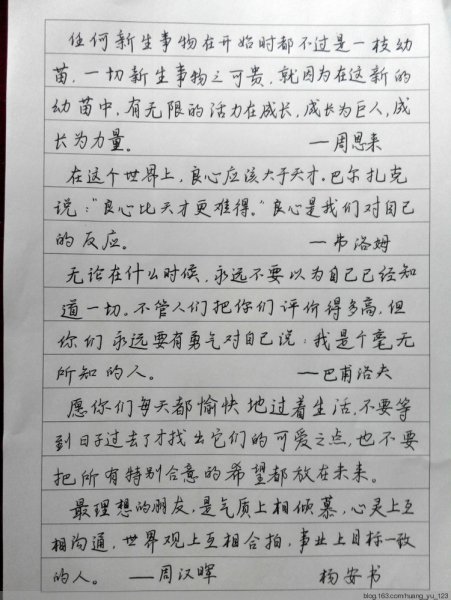 任何新生事物在开始时都不过是一枝幼
苗，一切新生事物之可贵，就因为在这新的
幼苗中，有无限的活力在成长，成长为巨人，成
长为力量。 —周恩来
在这个世界上，良心应该大于天才。巴尔扎克
说：“良心比天才更难得。”良心是我们对自己
的反应。 —弗洛姆
无论在什么时候，永远不要以为自己已经知
道一切。不管人们把你们评价得多高，但
你们永远要有勇气对自己说：我是个毫无
所知的人。 —巴甫洛夫
愿你们每天都愉快地过着生活，不要等
到日子过去了才找出它们的可爱之点，也不要
把所有特别合意的希望都放在未来。
最理想的朋友，是气质上相倾慕，心灵上互
相沟通，世界观上互相合拍，事业上目标一致
的人。 —周汉晖 杨安书
blog.163.com/huang_yu_123